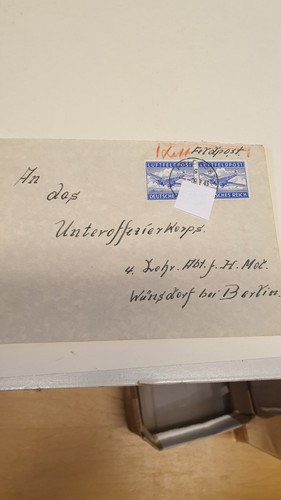 Feldpost
LUFTFELDPOST LUFTFELDPOST
DEUTSCHES REICH
An
das
Unteroffizierkorps.
4. Lehr. Abt. f. H. Mot.
Wünsdorf bei Berlin.